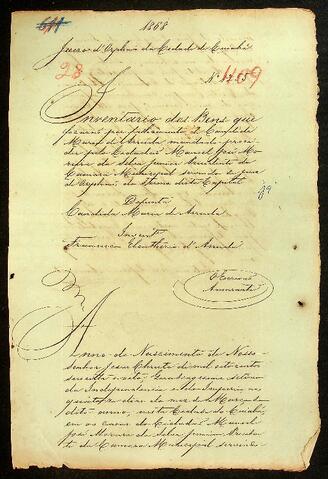 1868
Juizo d'Orphãos da Cidade de Cuiabá
28
Nº
409
Inventario dos Bens que
ficarão por fallecimento de Candida
Maria d'Arruda mandado proce-
der pelo Cidadão Manoel José Mo-
reira da Silva Junior Presidente da
Camara Municipal servindo de Juiz
de Orphãos do Termo desta Capital
Defunta
Candida Maria de Arruda
Invent.
Francisco Eleutherio d'Arruda
O Escrivão
Anno do Nascimento de Nosso
Senhor Jesus Christo de mil oito centos
sessenta e oito, quadragesimo setimo
da Independencia e do Imperio aos
quinze dias do mez de Março
dito anno, nesta Cidade de Cuiabá,
em as casas do Cidadão Manoel
José Moreira da Silva Junior Presiden-
te da Camara Municipal servindo